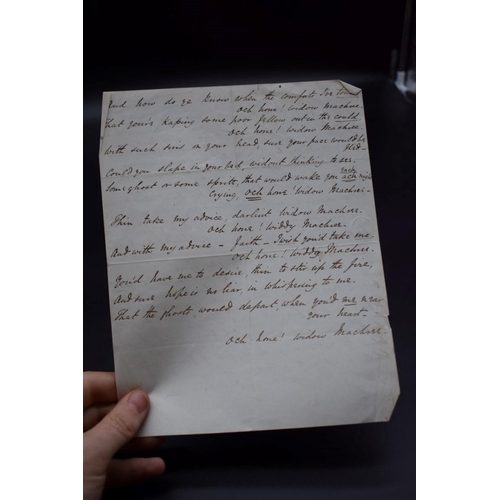 And how do ye know when the comforts I've tould
Och hone! Widow Machree.
That you're kaping some poor fellow out in the could,
Och hone! Widow Machree.
With such sins on your head, sure your pace would be
fled—
Could you slape in your bed, widout thinking to see,
Some ghost or some sprite, that would wake you each night
Crying, och hone! Widow Machree—
Thin take my advice, darlint Widow Machree.
Och hone! Widdy Machree.
And with my advice – faith – I wish you'd take me,
Och hone! Widdy Machree—
You'd have me to desire, thin to stir up the fire,
And sure hope is no liar, in whispering to me.
That the ghost would depart, when you'd me near
your heart—
Och hone! Widow Machree.